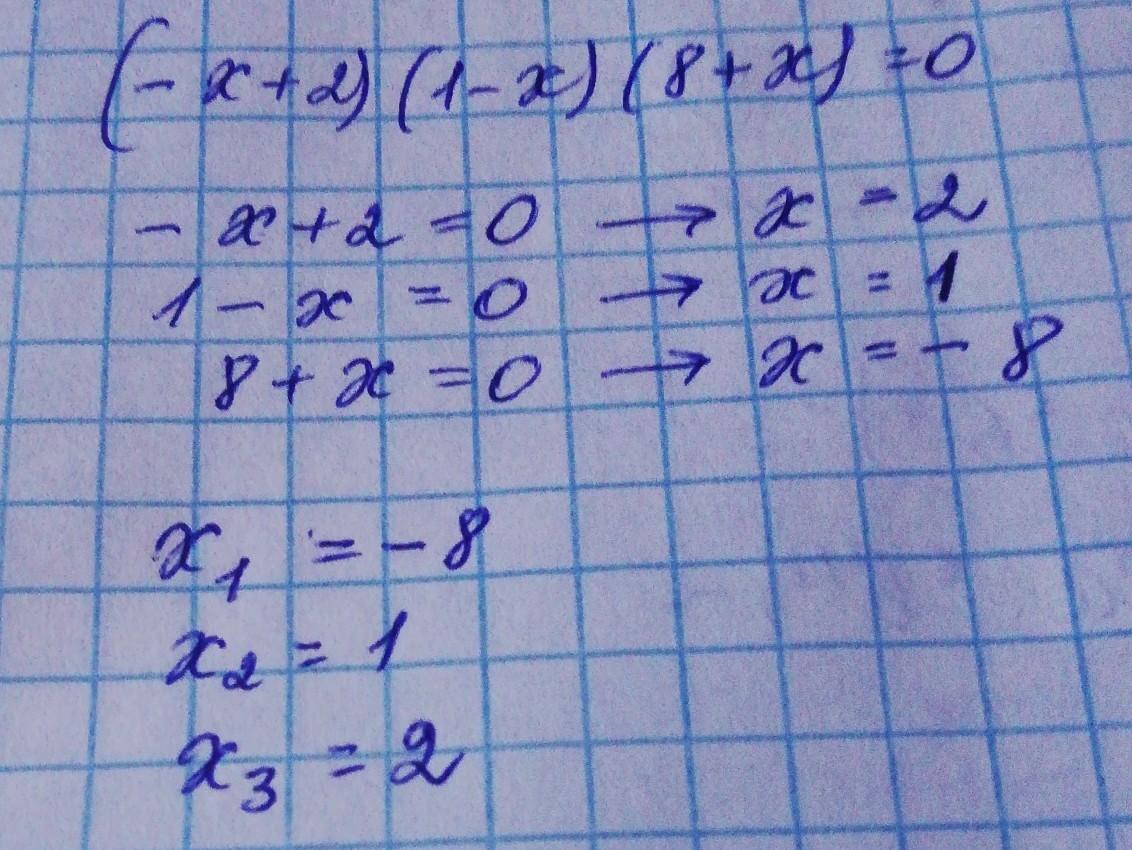 (-x+2)(1-x)(8+x)=0
-x+2=0 → x=2
1-x=0 → x=1
8+x=0 → x=-8
x₁=-8
x₂=1
x₃=2